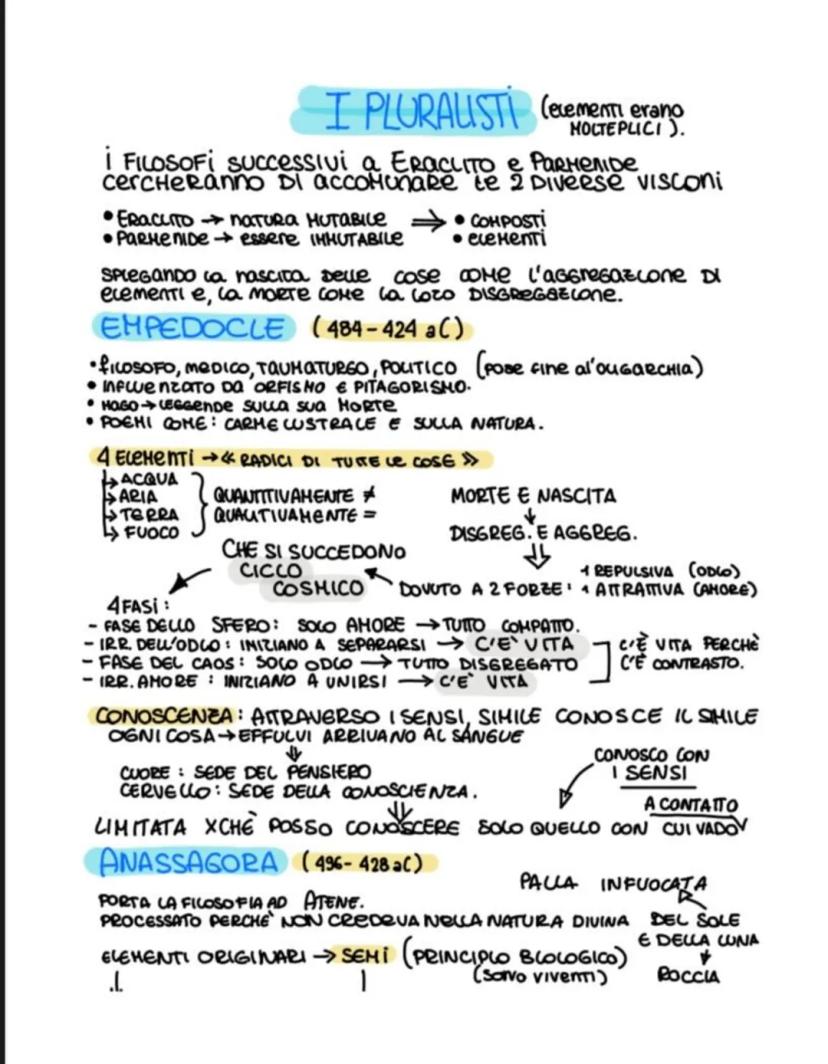 I PLURALISTI (elementi erano
MOLTEPLICI).
i FILOSOFI SUCCESSIVI a ERACLITO e PARMENIDE
cercheranno DI accomunare le 2 DIVERSE VISCONI
• ERACLITO → natura MUTABILE ⇒ • COMPOSTI
• PARMENIDE → essere IMMUTABILE • elementi
SPIEGANDO la nascita delle cose come l'aggregazione DI
elementi e, la morte come la loro DISGREGAZIONE.
EMPEDOCLE (484-424 aC)
• filosofo, medico, TAUMATURGO, POLITICO (pose fine al'OLIGARCHIA)
• INFLUENZATO DA ORFISMO E PITAGORISMO.
• MAGO → LEGGENDE SULLA SUA MORTE
• POEMI COME: CARME LUSTRALE E SULLA NATURA.
4 ELEMENTI → « RADICI DI TUTTE LE COSE »
↳ ACQUA
↳ ARIA
↳ TERRA
↳ FUOCO
QUANTITIVAMENTE ≠
QUALITIVAMENTE =
MORTE E NASCITA
↓
DISGREG. E AGGREG.
⇓
CHE SI SUCCEDONO
CICLO
COSMICO
DOVUTO A 2 FORZE: 1 REPULSIVA (ODIO)
1 ATTRATIVA (AMORE)
4 FASI:
- FASE DELLO SFERO: SOLO AMORE → TUTTO COMPATTO.
- IRR. DELL'ODIO: INIZIANO A SEPARARSI → C'E' VITA
- FASE DEL CAOS: SOLO ODIO → TUTTO DISGREGATO
- IRR. AMORE: INIZIANO A UNIRSI → C'E' VITA
C'È VITA PERCHÈ
C'È CONTRASTO.
CONOSCENZA: ATTRAVERSO I SENSI, SIMILE CONOSCE IL SIMILE
OGNI COSA → EFFULVI ARRIVANO AL SANGUE
⇓
CUORE: SEDE DEL PENSIERO
CERVELLO: SEDE DELLA CONOSCIENZA.
⇓
CONOSCO CON
I SENSI
A CONTATTO
LIMITATA XCHÈ POSSO CONOSCERE SOLO QUELLO CON CUI VADO
ANASSAGORA (496-428 aC)
PORTA LA FILOSOFIA AD ATENE.
PROCESSATO PERCHE' NON CREDEVA NELLA NATURA DIVINA DEL SOLE
E DELLA LUNA
PALLA INFUOCATA
↓
ROCCIA
ELEMENTI ORIGINARI → SEMI (PRINCIPIO BIOLOGICO)
(SONO VIVENTI)